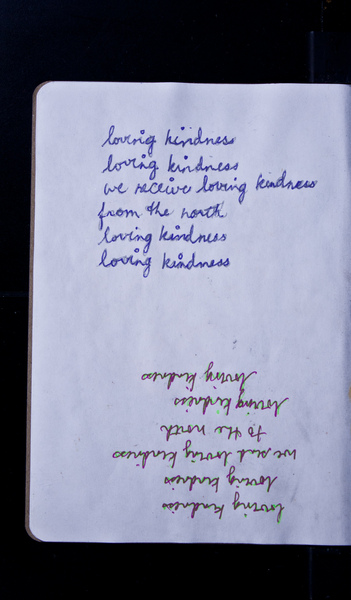 loving kindness
loving kindness
we receive loving kindness
from the north
loving kindness
loving kindness
loving kindness
loving kindness
we send loving kindness
to the north
loving kindness
loving kindness